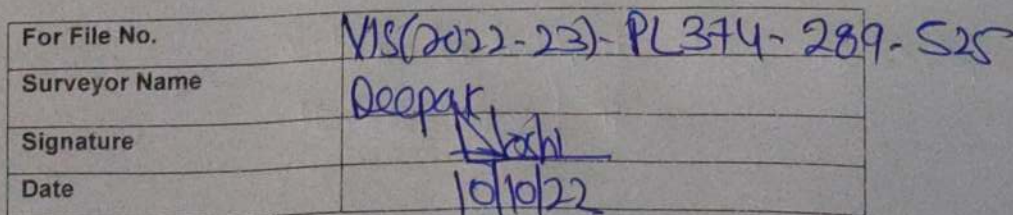 For File No. VIS(2022-23)-PL374-289-525
Surveyor Name Deepak
Signature Joshi
Date 10/10/22